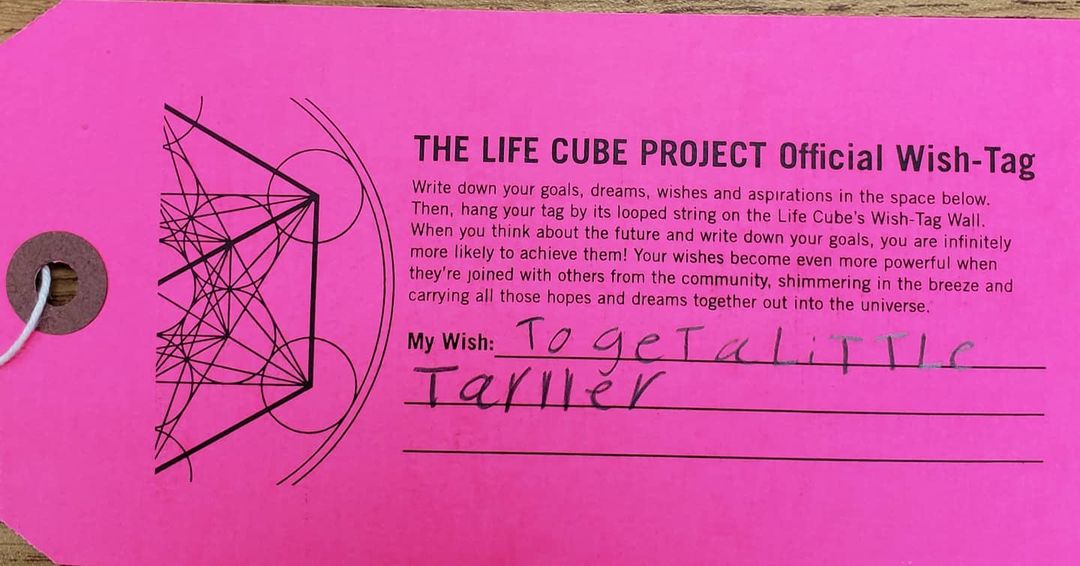 THE LIFE CUBE PROJECT Official Wish-Tag
Write down your goals, dreams, wishes and aspirations in the space below.
Then, hang your tag by its looped string on the Life Cube's Wish-Tag Wall.
When you think about the future and write down your goals, you are infinitely
more likely to achieve them! Your wishes become even more powerful when
they're joined with others from the community, shimmering in the breeze and
carrying all those hopes and dreams together out into the universe.
My Wish: To geT a LiTTLe
Tarller